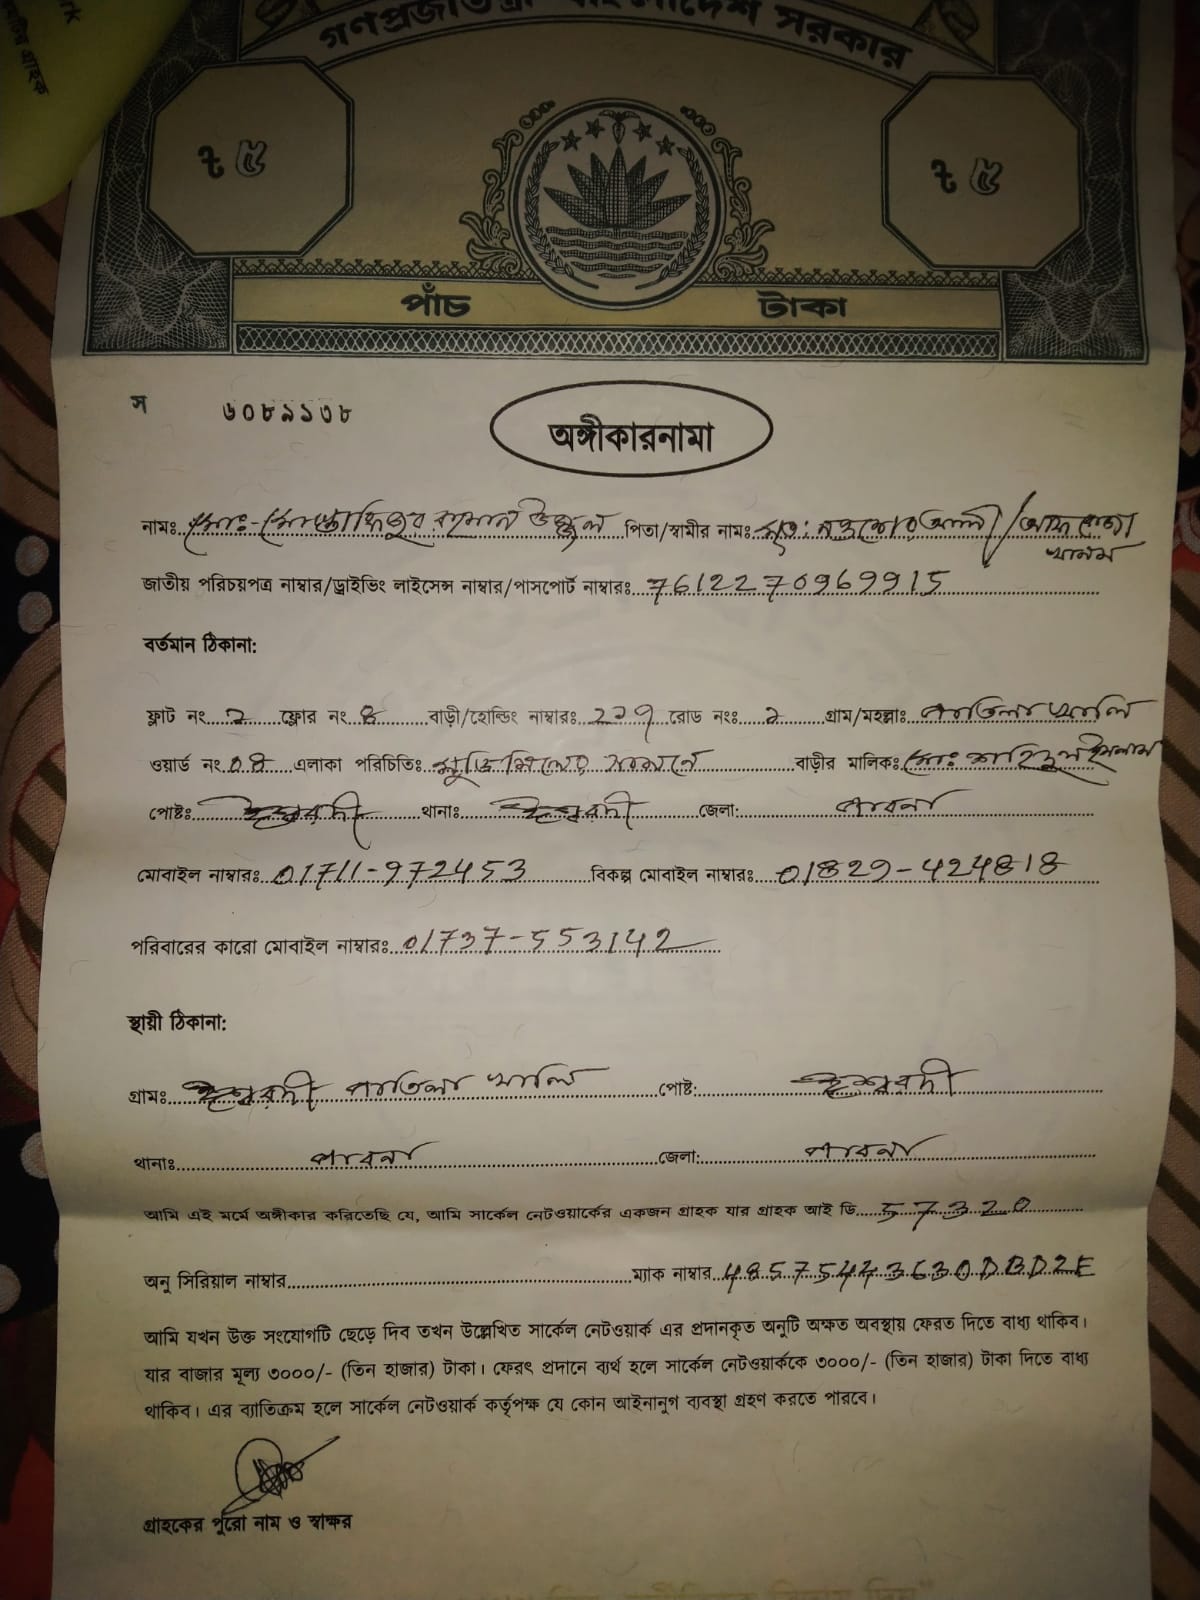 গণপ্রজাতন্ত্রী বাংলাদেশ সরকার
৳ ৫ ৳ ৫
পাঁচ টাকা
স ৬০৮৯১৩৮
অঙ্গীকারনামা
নামঃ মোঃ-মোস্তাফিজুর রহমান উজ্জ্বল পিতা/স্বামীর নামঃ মৃত: নওশের আলী / আফরোজা
খানম
জাতীয় পরিচয়পত্র নাম্বার/ড্রাইভিং লাইসেন্স নাম্বার/পাসপোর্ট নাম্বারঃ 7612270969915
বর্তমান ঠিকানা:
ফ্লাট নং ২ ফ্লোর নং ৪ বাড়ী/হোল্ডিং নাম্বারঃ রোড নংঃ গ্রাম/মহল্লাঃ
ওয়ার্ড নং ০৪ এলাকা পরিচিতিঃ সামনে বাড়ীর মালিকঃ মোঃ ইসলাম
পোষ্টঃ ঈশ্বরদী থানাঃ ঈশ্বরদী জেলা: পাবনা
মোবাইল নাম্বারঃ 01711-972453 বিকল্প মোবাইল নাম্বারঃ 01829-424818
পরিবারের কারো মোবাইল নাম্বারঃ 01737-553142
স্থায়ী ঠিকানা:
গ্রামঃ ঈশ্বরদী পোষ্ট: ঈশ্বরদী
থানাঃ পাবনা জেলা: পাবনা
আমি এই মর্মে অঙ্গীকার করিতেছি যে, আমি সার্কেল নেটওয়ার্কের একজন গ্রাহক যার গ্রাহক আই ডি 57320
অনু সিরিয়াল নাম্বার ম্যাক নাম্বার 48575443630DBD2E
আমি যখন উক্ত সংযোগটি ছেড়ে দিব তখন উল্লেখিত সার্কেল নেটওয়ার্ক এর প্রদানকৃত অনুটি অক্ষত অবস্থায় ফেরত দিতে বাধ্য থাকিব।
যার বাজার মূল্য ৩০০০/- (তিন হাজার) টাকা। ফেরৎ প্রদানে ব্যর্থ হলে সার্কেল নেটওয়ার্ককে ৩০০০/- (তিন হাজার) টাকা দিতে বাধ্য
থাকিব। এর ব্যাতিক্রম হলে সার্কেল নেটওয়ার্ক কর্তৃপক্ষ যে কোন আইনানুগ ব্যবস্থা গ্রহণ করতে পারবে।
গ্রাহকের পুরো নাম ও স্বাক্ষর